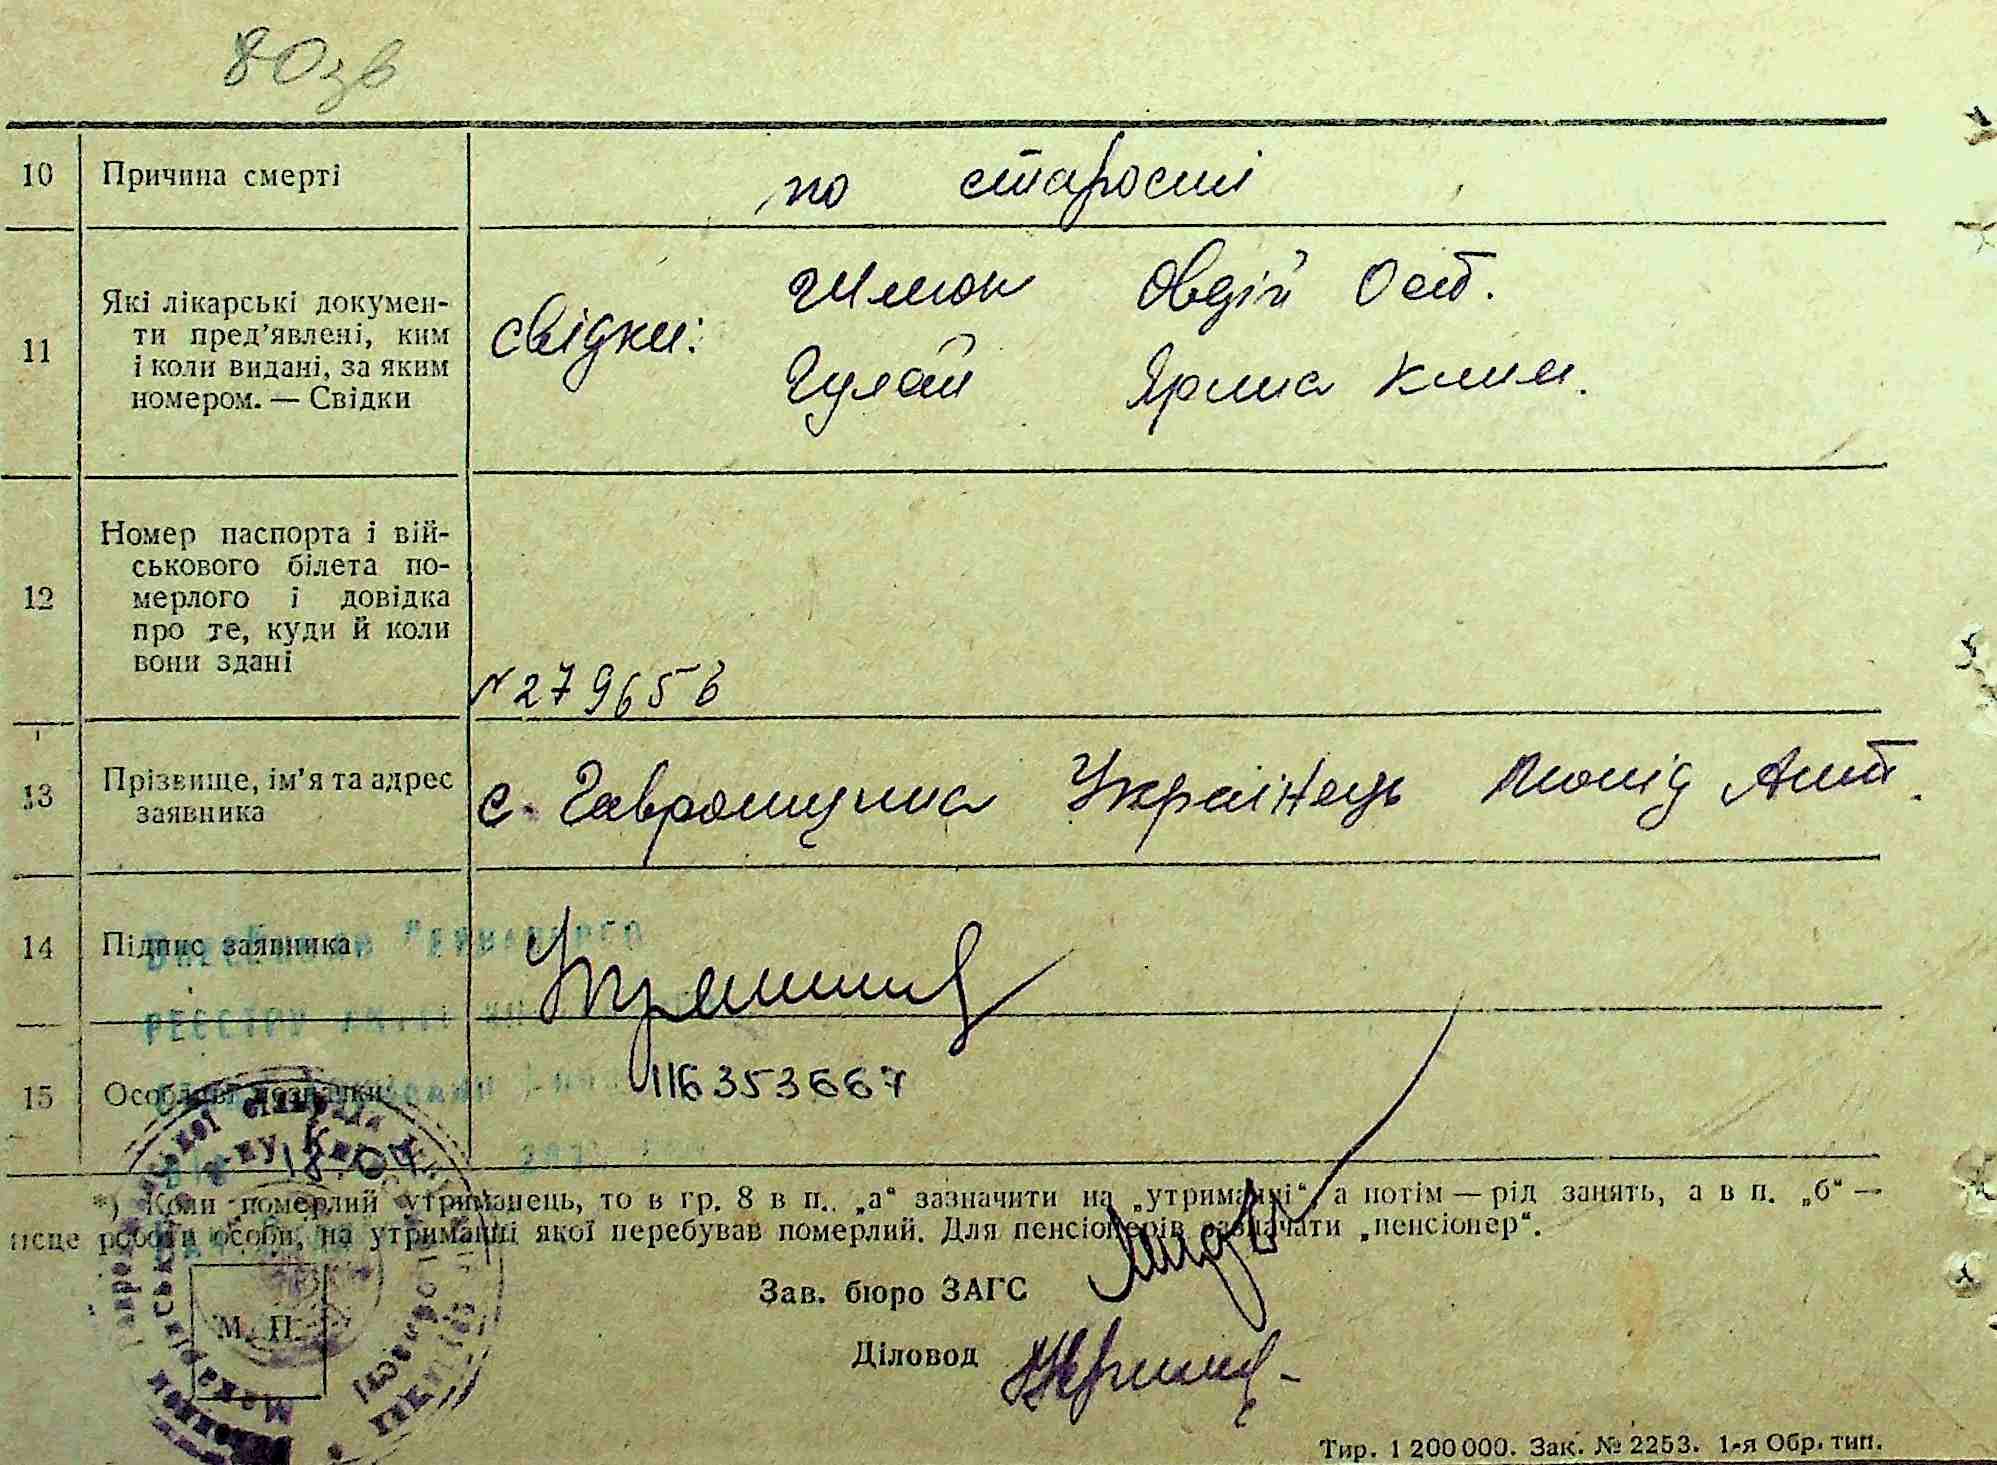 80зв
10 Причина смерті по старості
11 Які лікарські докумен-
ти пред'явлені, ким
і коли видані, за яким
номером. — Свідки
свідки: Овдій Ост.
Гулай Ярина Клим.
12 Номер паспорта і вій-
ськового білета по-
мерлого і довідка
про те, куди й коли
вони здані
№279656
13 Прізвище, ім'я та адрес
заявника
с. Гавронщина Українець Ант.
14 Підпис заявника
РЕЄСТРУ
15 Особливі позначки
116353667
18 04
*) Коли померлий утриманець, то в гр. 8 в п. „а“ зазначити на „утриманні“, а потім — рід занять, а в п. „б“ —
місце роботи особи, на утриманні якої перебував померлий. Для пенсіонерів зазначати „пенсіонер“.
Зав. бюро ЗАГС
М. П.
Діловод
Тир. 1 200 000. Зак. № 2253. 1-я Обр. тип.